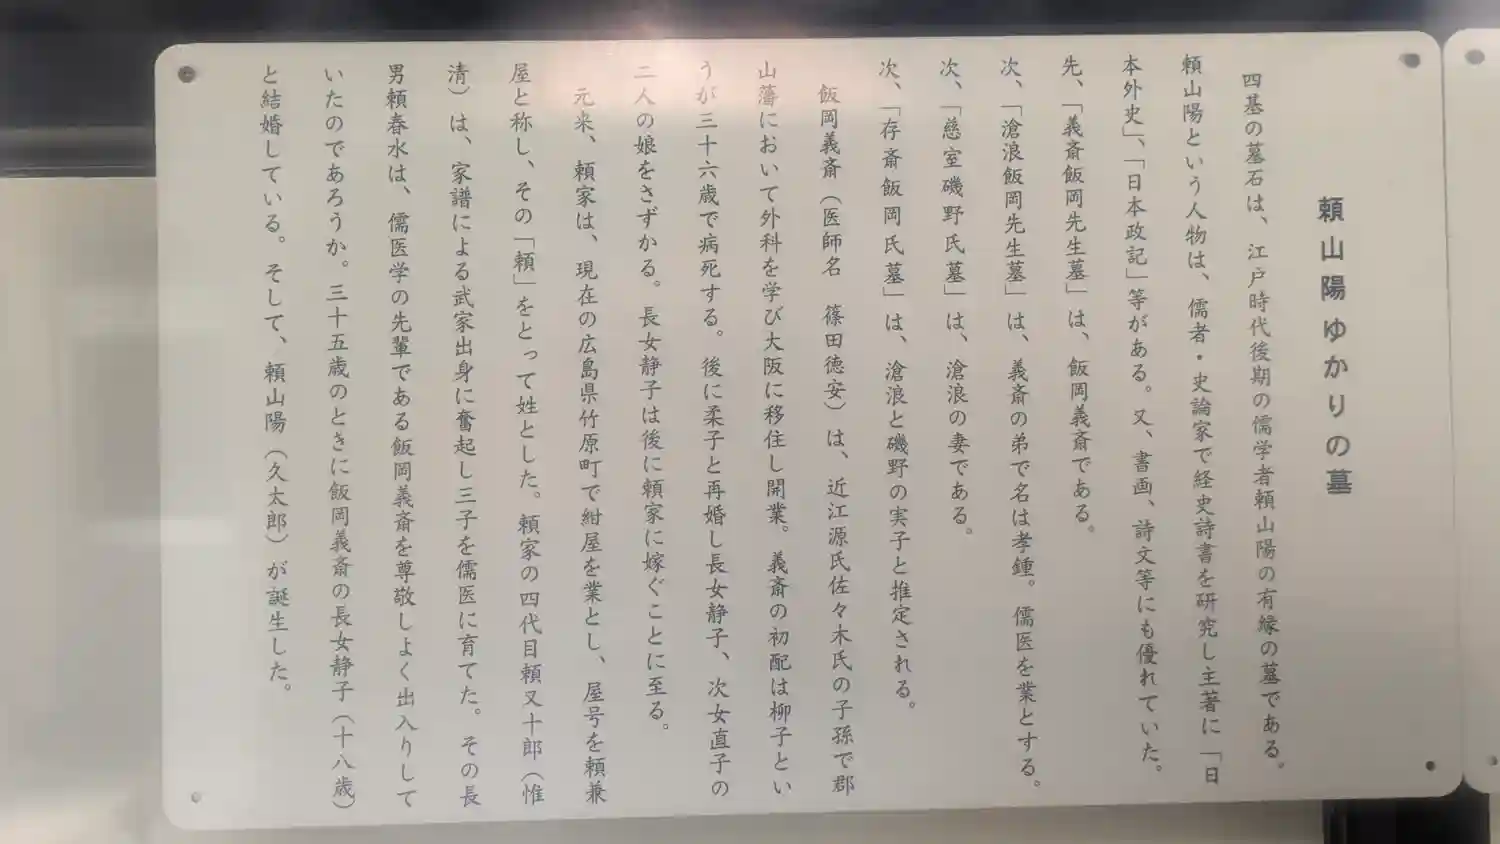 頼山陽ゆかりの墓
四基の墓石は、江戸時代後期の儒学者頼山陽の有縁の墓である。
頼山陽という人物は、儒者・史論家で経史詩書を研究し主著に「日
本外史」、「日本政記」等がある。又、書画、詩文等にも優れていた。
先、「義斎飯岡先生墓」は、飯岡義斎である。
次、「滄浪飯岡先生墓」は、義斎の弟で名は孝鍾。儒医を業とする。
次、「慈室磯野氏墓」は、滄浪の妻である。
次、「存斎飯岡氏墓」は、滄浪と磯野の実子と推定される。
飯岡義斎（医師名 篠田徳安）は、近江源氏佐々木氏の子孫で郡
山藩において外科を学び大阪に移住し開業。義斎の初配は柳子とい
うが三十六歳で病死する。後に柔子と再婚し長女静子、次女直子の
二人の娘をさずかる。長女静子は後に頼家に嫁ぐことに至る。
元来、頼家は、現在の広島県竹原町で紺屋を業とし、屋号を頼兼
屋と称し、その「頼」をとって姓とした。頼家の四代目頼又十郎（惟
清）は、家譜による武家出身に奮起し三子を儒医に育てた。その長
男頼春水は、儒医学の先輩である飯岡義斎を尊敬しよく出入りして
いたのであろうか。三十五歳のときに飯岡義斎の長女静子（十八歳）
と結婚している。そして、頼山陽（久太郎）が誕生した。